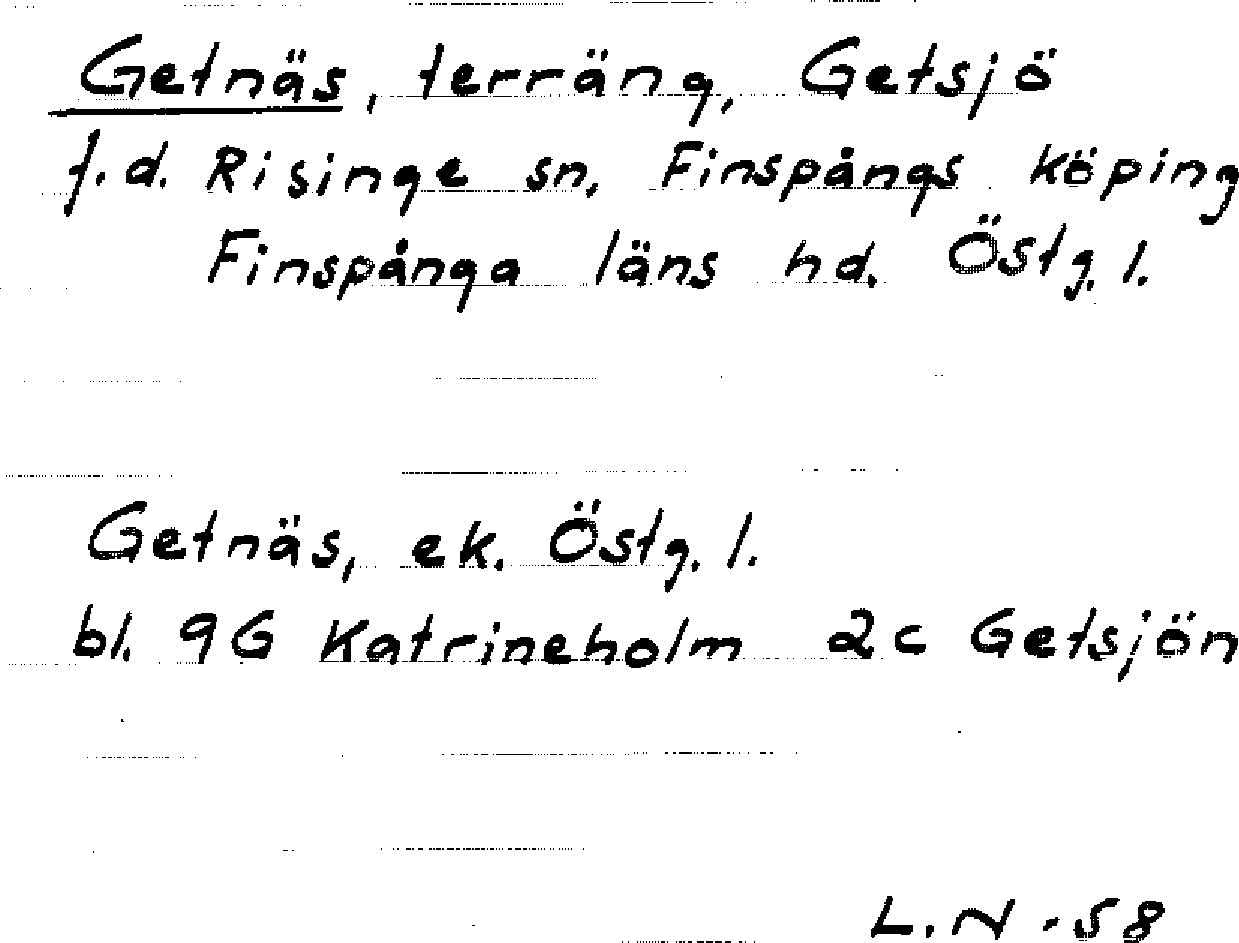 Getnäs, terräng, Getsjö
f.d. Risinge sn, Finspångs köping
Finspånga läns hd. Östg. l.
Getnäs, ek. Östg. l.
bl. 9G Katrineholm 2c Getsjön
L.N -58